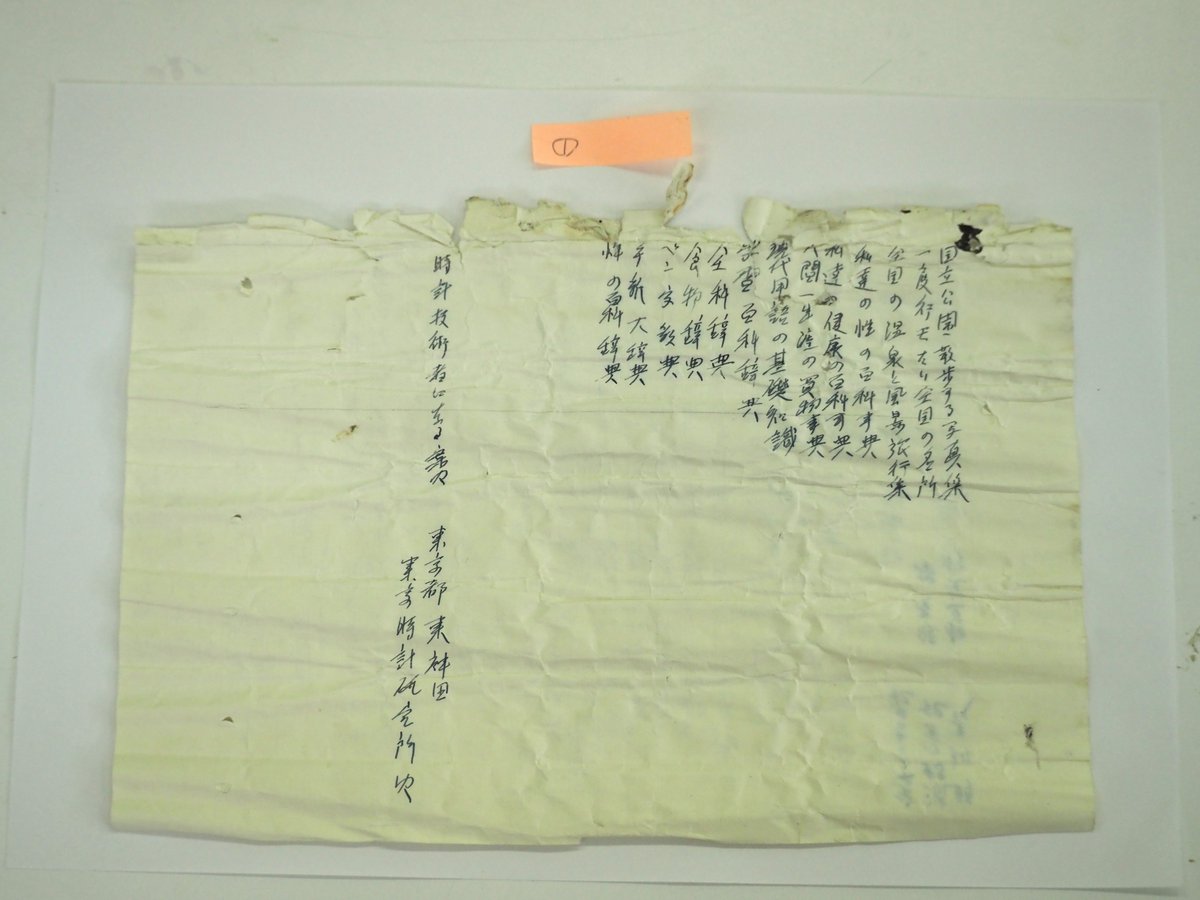 ①
国立公園散歩する写真集
一度行き たい全国の名所
全国の温泉と風景旅行集
私達の性の百科事典
私達の健康の百科事典
人間一生涯の買物事典
現代用語の基礎知識
学習百科辞典
全科辞典
食物辞典
ペン字辞典
大辞典
の百科辞典
時計技術者に
東京都 東神田
東京時計研究所